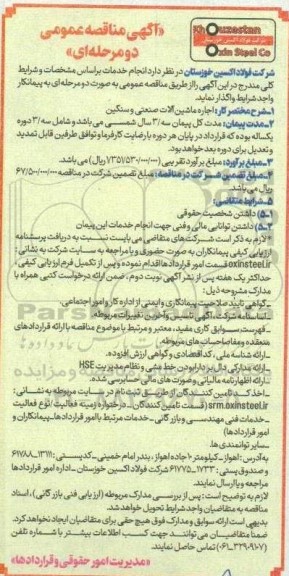 Khouzestan
شرکت فولاد اکسین خوزستان
Oxin Steel Co
«آگهی مناقصه عمومی
دو مرحله‌ای»
شرکت فولاد اکسین خوزستان در نظر دارد انجام خدمات براساس مشخصات و شرایط
کلی مندرج در این آگهی را از طریق مناقصه عمومی به صورت دو مرحله‌ای به پیمانکار
واجد شرایط واگذار نماید.
۱-شرح مختصر کار: اجاره ماشین‌آلات صنعتی و سنگین
۲-مدت پیمان: مدت کل پیمان سه/۳ سال شمسی می باشد و شامل سه/۳ دوره
یکساله بوده که قرارداد در پایان هر دوره با رضایت کارفرما و توافق طرفین قابل تمدید
و تعدیل برای دوره بعد خواهد بود.
۳-مبلغ برآورد: مبلغ برآورد تقریبی (۷۳۵۱/۵۳۰/۰۰۰/۰۰۰ ریال) می باشد.
۴-مبلغ تضمین شرکت در مناقصه: مبلغ تضمین شرکت در مناقصه ۶۷/۵۰۰/۰۰۰/۰۰۰
ریال می باشد.
۵-شرایط متقاضی:
۵-۱) داشتن شخصیت حقوقی
۵-۲) داشتن توانایی مالی و فنی جهت انجام خدمات این پیمان
لازم به ذکر است شرکت های متقاضی می بایست نسبت به دریافت پرسشنامه
ارزیابی کیفی پیمانکاران به صورت حضوری و یا مراجعه به سایت شرکت به نشانی:
oxinsteel.ir قسمت امور قراردادها اقدام نموده و پس از تکمیل فرم ارزیابی کیفی،
حداکثر یک هفته پس از نشر آگهی نوبت دوم، ضمن ارائه درخواست کتبی همراه با
مدارک مشروحه ذیل:
-گواهی تایید صلاحیت پیمانکاری و ایمنی از اداره کار و امور اجتماعی.
-اساسنامه شرکت، آگهی تاسیس و آخرین تغییرات مربوطه.
-فهرست سوابق کاری مفید، معتبر و مرتبط با موضوع مناقصه با ارائه قراردادهای
منعقده و مفاصاحساب های مربوطه.
-ارائه شناسه ملی، کد اقتصادی و گواهی ارزش افزوده.
-ارائه مدارکی دال بر دارا بودن خط مشی و نظام مدیریت HSE
-ارائه اظهارنامه مالیاتی و صورت های مالی حسابرسی شده.
-اخذ کد تامین کنندگان از طریق ثبت نام در سایت مربوطه به نشانی:
srm.oxinsteel.ir (قسمت تامین کنندگان - در حوزه/زمینه فعالیت/نوع فعالیت
-خدمات فنی مهندسی و بازرگانی - خدمات مرتبط با امور قراردادها- پیمانکاران و
امور قراردادها)
-سایر توانمندی ها.
به آدرس: اهواز - کیلومتر ۱۰ جاده اهواز، بندر امام خمینی - کدپستی: ۱۳۱۱۱-۶۱۷۸۸
و صندوق پستی: ۱۷۳۳-۶۱۷۷۵ شرکت فولاد اکسین خوزستان - اداره امور قراردادها
مراجعه و یا ارسال نمایند.
لازم به توضیح است: پس از بررسی مدارک مربوطه (ارزیابی فنی بازرگانی)، اسناد
مناقصه به متقاضیان واجد شرایط تحویل خواهد شد.
بدیهی است ارائه سوابق و مدارک فوق هیچ حقی برای متقاضیان ایجاد نخواهد کرد.
ضمنا متقاضیان می توانند جهت کسب اطلاعات بیشتر با شماره تلفن
(۰۶۱-۳۲۹۰۹۱۰۷) تماس حاصل نمایند.
«مدیریت امور حقوقی و قراردادها»